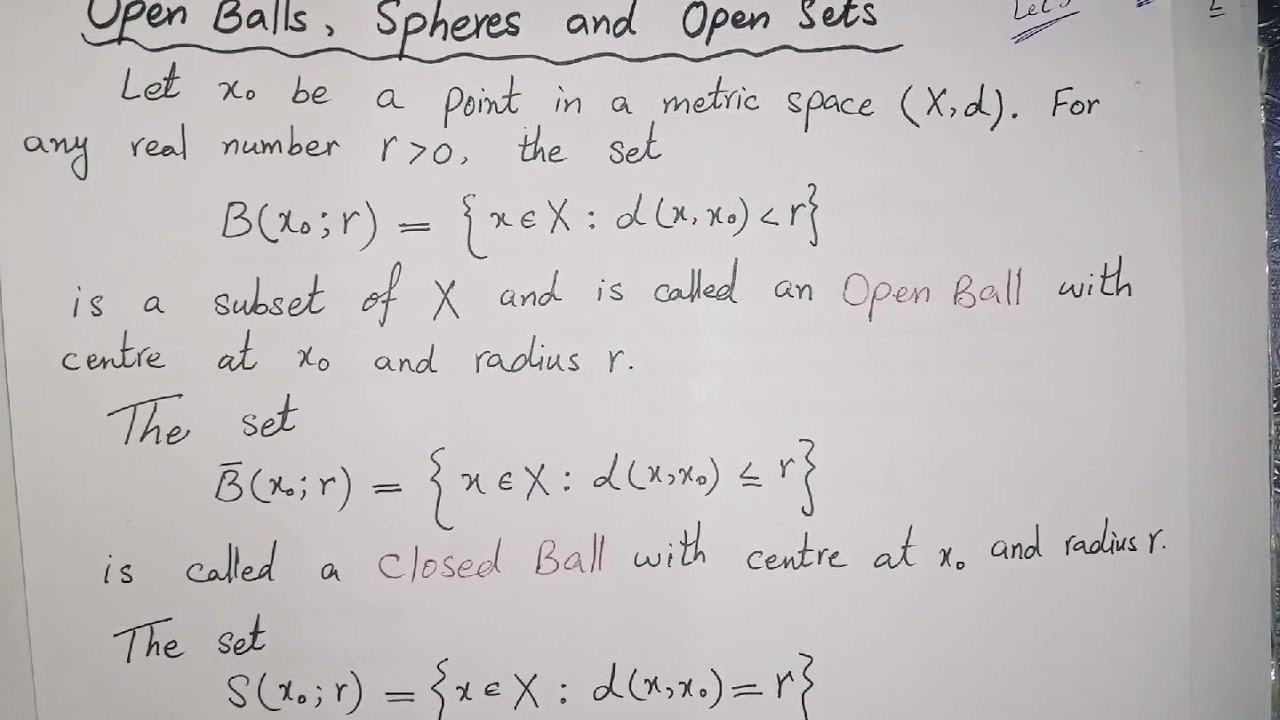 Open Balls, Spheres and Open Sets
Let x₀ be a point in a metric space (X,d). For
any real number r>0, the set
B(x₀;r) = {x∈X : d(x,x₀)<r}
is a subset of X and is called an Open Ball with
centre at x₀ and radius r.
The set
B̄(x₀;r) = {x∈X : d(x,x₀) ≤ r}
is called a Closed Ball with centre at x₀ and radius r.
The set
S(x₀;r) = {x∈X : d(x,x₀) = r}